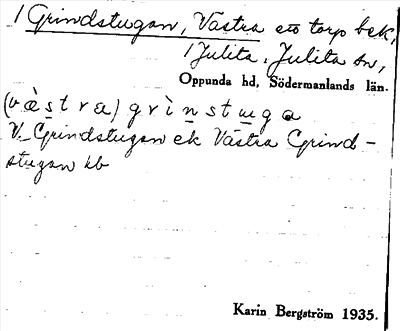 1 Grindstugan, Västra ett torp bek,
1 Julita, Julita sn,
Oppunda hd, Södermanlands län.
(væ̀stra) grìnstuga
V. Grindstugan ek Västra Grind-
stugan kb
Karin Bergström 1935.